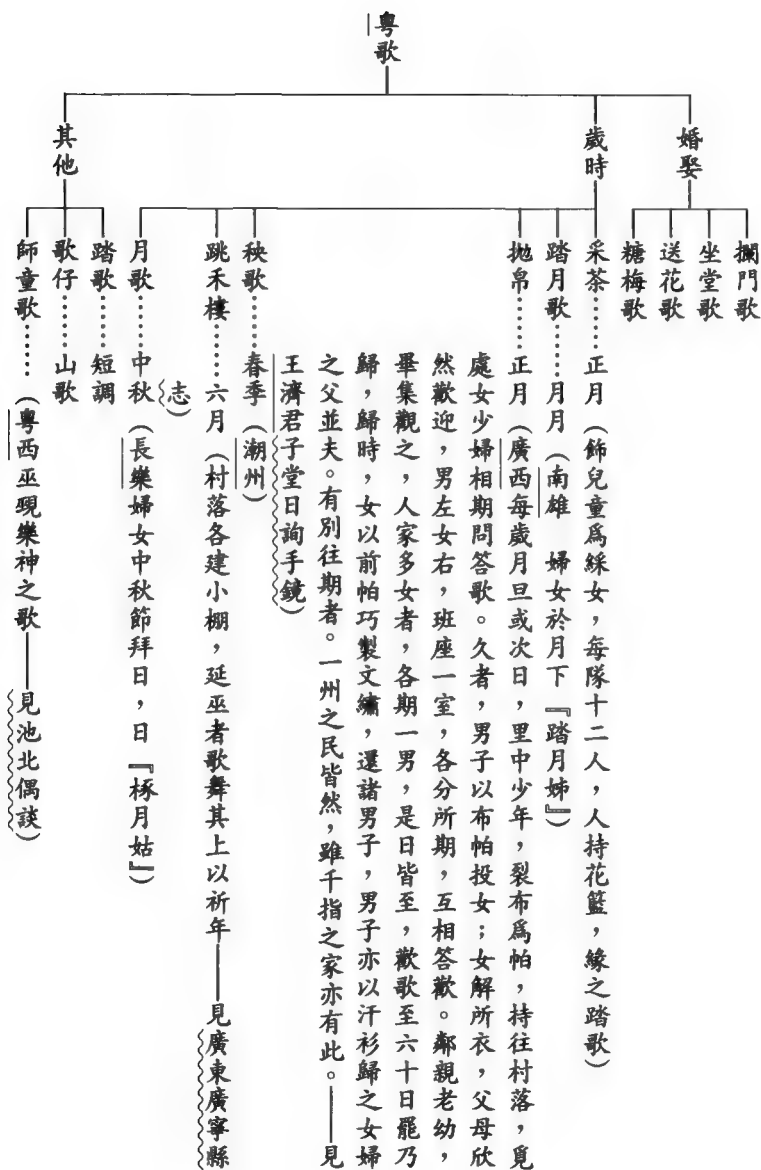 粵歌
婚娶
攔門歌
坐堂歌
送花歌
糖梅歌
歲時
采茶……正月(飾兒童爲綵女,每隊十二人,人持花籃,緣之踏歌)
踏月歌……月月(南雄 婦女於月下『踏月姊』)
拋帛……正月(廣西每歲月旦或次日,里中少年,裂布爲帕,持往村落,覓
處女少婦相期問答歌。久者,男子以布帕投女;女解所衣,父母欣
然歡迎,男左女右,班座一室,各分所期,互相答歡。鄰親老幼,
畢集觀之,人家多女者,各期一男,是日皆至,歡歌至六十日罷乃
歸,歸時,女以前帕巧製文繡,還諸男子,男子亦以汗衫歸之女婦
之父並夫。有別往期者。一州之民皆然,雖千指之家亦有此。——見
王濟君子堂日詢手鏡)
秧歌……春季(潮州)
跳禾樓……六月(村落各建小棚,延巫者歌舞其上以祈年——見廣東廣寧縣
志)
月歌……中秋(長樂婦女中秋節拜日,日『椓月姑』)
其他
踏歌……短調
歌仔……山歌
師童歌……(粵西巫覡樂神之歌——見池北偶談)